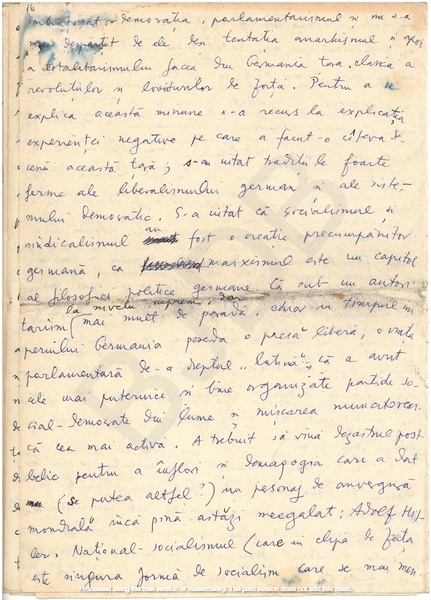 16
îmbrățișat democrația, parlamentarismul și nu s-a
mai depărtat de ele deși tentația anarhismul și apoi
a totalitarismului făcea din Germania țara clasică a
revoluțiilor și loviturilor de forță. Pentru a se
explica această minune s-a recurs la explicația
experienței negative pe care a făcut-o cîteva de-
cenii această țară; s-au uitat tradițiile foarte
ferme ale liberalismului german și ale siste-
mului democratic. S-a uitat că socialismul și
sindicalismul au fost o creație precumpănitor
germană, ca marxismul este un capitol
al filosofiei politice germane. Că sub un autori-
tarism la nivelul suprem, dar mai mult de paradă, chiar în timpul im-
periului Germania poseda o presă liberă, o viață
parlamentară de-a dreptul că a avut
ale mai puternice și bine organizate partide so-
cial-democrate din lume și mișcarea muncitoreas-
că cea mai activă. A trebuit să vină dezastrul post
belic pentru a înflori și demagogia care a dat
(se putea altfel?) un personaj de anvergură
mondială încă pînă astăzi neegalat: Adolf Hit-
ler. Național-socialismul (care în clipa de față
este singura formă de socialism care se mai men